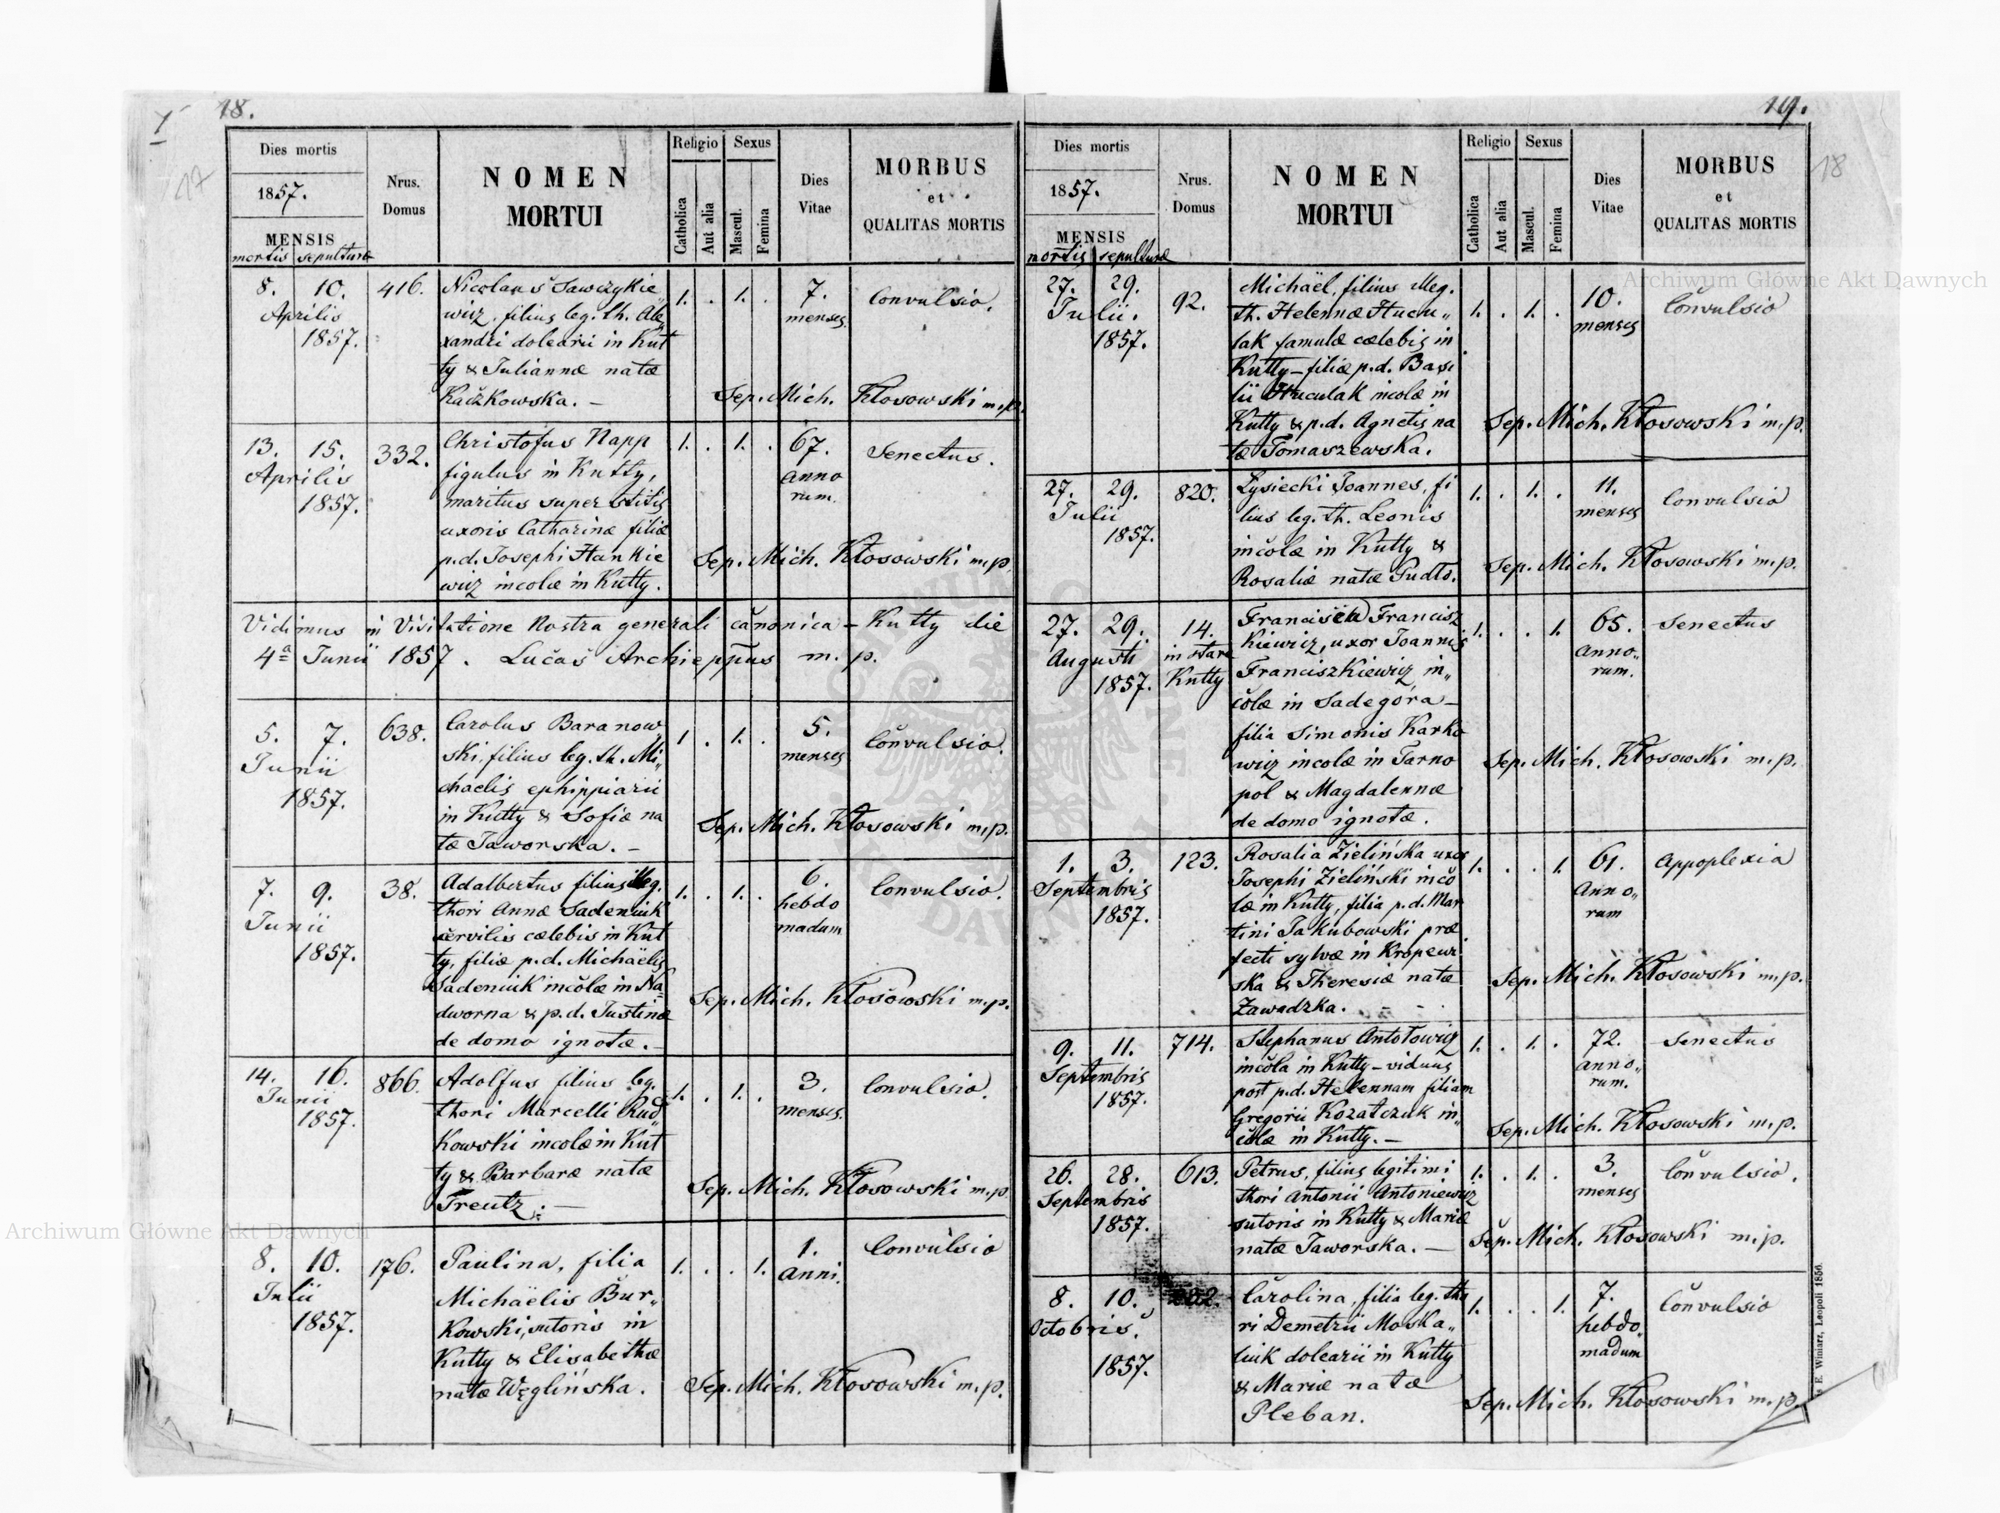 18.
Dies mortis
1857.
MENSIS
mortis sepulturæ
Nrus. Domus
NOMEN
MORTUI
Religio
Catholica
Aut alia
Sexus
Mascul.
Femina
Dies Vitae
MORBUS
et
QUALITAS MORTIS
8. 10. 416. Nicolaus Sawczykie
Aprilis wicz, filius leg. th. Ale
1857. xandri dolearii in Kut
ty & Juliannæ natæ
Kaczkowska. –
1. . 1. . 7. menses. Convulsio.
Sep. Mich. Kłosowski m.p.
13. 15. 332. Christofus Napp
Aprilis figulus in Kutty,
1857. maritus superstitis
uxoris Catharinæ filiæ
p.d. Josephi Hankie
wicz incolæ in Kutty.
1. . 1. . 67. anno rum. Senectus.
Sep. Mich. Kłosowski m.p.
Vidimus in Visitatione Nostra generali canonica – Kutty die
4ª Junii 1857. Lucas Archieppus m. p.
5. 7. 638. Carolus Baranow
Junii ski, filius leg. th. Mi„
1857. chaelis ephippiarii
in Kutty & Sofiæ na
tæ Jaworska. –
1. . 1. . 5. menses Convulsio.
Sep. Mich. Kłosowski m.p.
7. 9. 38. Adalbertus filius illeg.
Junii thori Annæ Sadeniuk
1857. servilis cælebis in Kut
ty, filiæ p.d. Michaëlis
Sadeniuk incolæ in Na
dworna & p.d. Justinæ
de domo ignotæ. –
1. . 1. . 6. hebdo madum Convulsio.
Sep. Mich. Kłosowski m.p.
14. 16. 866. Adolfus filius leg.
Junii thori Marcelli Rud„
1857. kowski incolæ in Kut
ty & Barbaræ natæ
Freutz. –
1. . 1. . 3. menses. Convulsio.
Sep. Mich. Kłosowski m.p.
8. 10. 176. Paulina, filia
Julii Michaëlis Bur„
1857. kowski, sutoris in
Kutty & Elisabethæ
natæ Węglińska.
1. . . 1. 1. Anni. Convulsio
Sep. Mich. Kłosowski m.p.
19.
18
Dies mortis
1857.
MENSIS
mortis sepulturæ
Nrus. Domus
NOMEN
MORTUI
Religio
Catholica
Aut alia
Sexus
Mascul.
Femina
Dies Vitae
MORBUS
et
QUALITAS MORTIS
27. 29. 92. Michaël, filius illeg.
Julii. th. Helennæ Hucu„
1857. lak famulæ cælebis in
Kutty – filiæ p.d. Basi
lii Huculak incolæ in
Kutty & p.d. Agnetis na
tæ Tomaszewska.
1. . 1. . 10. menses Convulsio
Sep. Mich. Kłosowski m.p.
27. 29. 820. Łysiecki Joannes, fi
Julii lius leg. th. Leonis
1857. incolæ in Kutty &
Rosaliæ natæ Pudło.
1. . 1. . 11. menses Convulsio
Sep. Mich. Kłosowski m.p.
27. 29. 14. Francisca Francisz
Augusti in stare Kutty kiewicz, uxor Joannis
1857. Franciszkiewicz in„
colæ in Sadegóra –
filia Simonis Karko
wicz incolæ in Tarno
pol & Magdalennæ
de domo ignotæ.
1. . . 1. 65. anno„ rum. Senectus
Sep. Mich. Kłosowski m.p.
1. 3. 123. Rosalia Zielińska uxor
Septembris Josephi Zieliński inco
1857. læ in Kutty, filia p.d. Mar
tini Jakubowski præ
fecti sylvæ in Kropewi
ska & Theresiæ natæ
Zawadzka. –
1. . . 1. 61. Anno„ rum Appoplexia
Sep. Mich. Kłosowski m.p.
9. 11. 714. Stephanus Antotowicz
Septembris incola in Kutty – viduus
1857. post p.d. Helennam filiam
Gregorii Kozatczuk in„
colæ in Kutty. –
1. . 1. . 72. anno„ rum. Senectus
Sep. Mich. Kłosowski m.p.
26. 28. 613. Petrus, filius legitimi
Septembris thori Antonii Antoniewicz
1857. sutoris in Kutty & Mariæ
natæ Jaworska. –
1. . 1. . 3. menses Convulsio.
Sep. Mich. Kłosowski m.p.
8. 10. Carolina, filia leg. tho
Octobris. ri Demetrii Moska„
1857. liuk dolearii in Kutty
& Mariæ natæ
Pleban.
1. . . 1. 7. hebdo„ madum Convulsio
Sep. Mich. Kłosowski m.p.
E. Winiarz, Leopoli 1856.
Archiwum Główne Akt Dawnych
Archiwum Główne Akt Dawnych